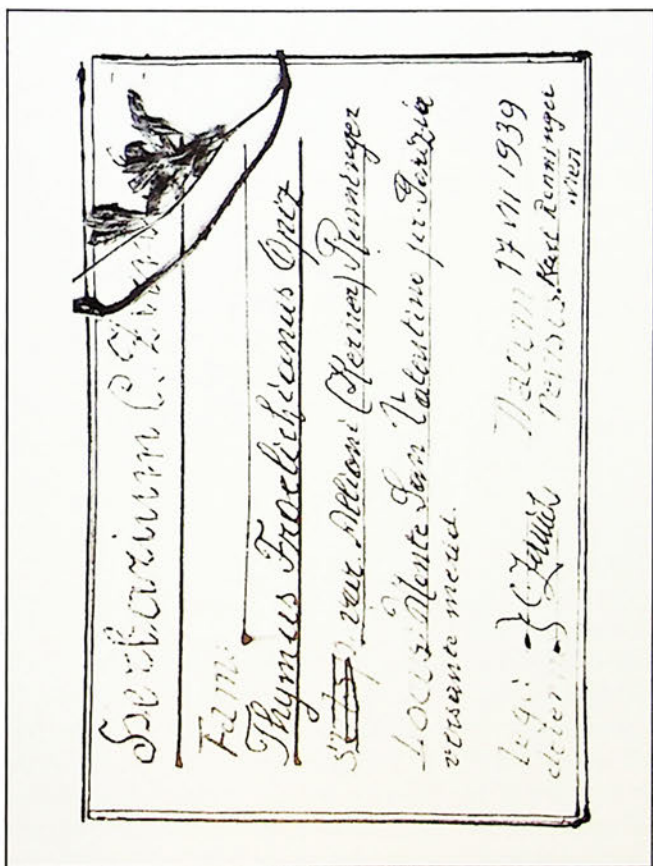 Herbarium C. Zirnich
Fam:
Thymus Froelichianus Opiz
var. Allioni (Kerner) Ronninger
Locus: Monte San Valentino pr. Gorizia
versante merid.
Legi: } C. Zirnich Datum 17 VII 1939
determ. Revisus. Karl Ronninger
Wien